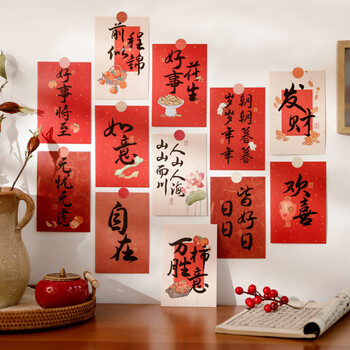 前似
程錦
好事
花生
好事將至
如意
朝朝暮暮
岁岁年年
发财
无忧无虑
自在
人山人海
山山而川
皆好日
日日
欢喜
万柿
胜意